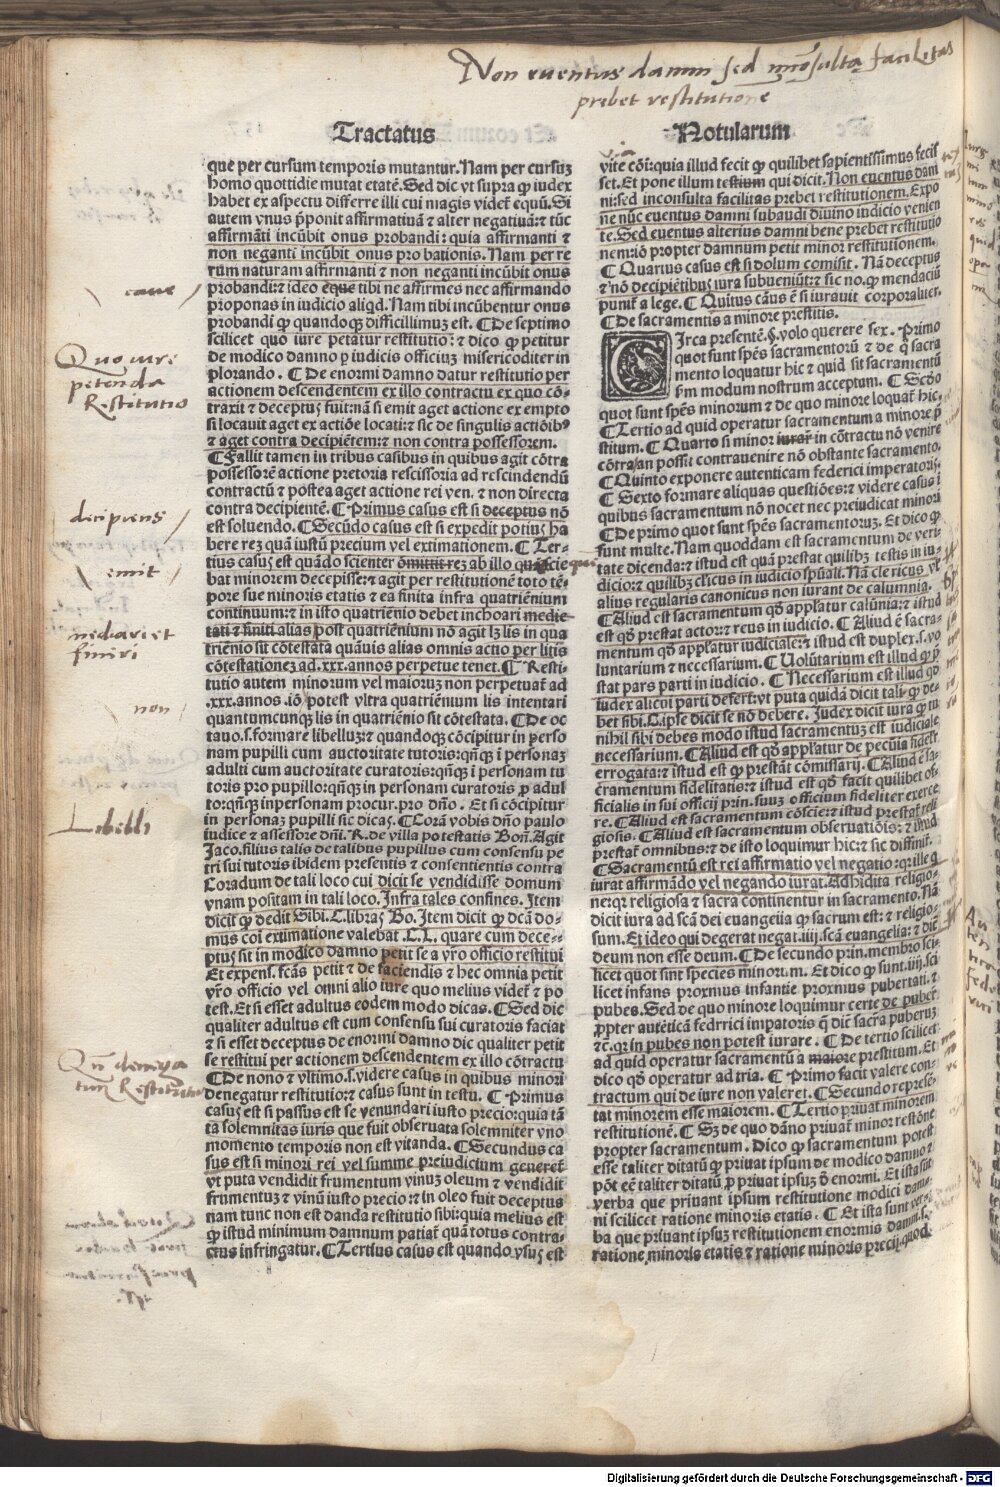 Non euentus damni sed inconsulta facilitas
prebet restitutione
Tractatus
Notularum
que per cursum temporis mutantur. Nam per cursuz
homo quottidie mutat etatē. Sed dic vt supra ꝙ iudex
habet ex aspectu differre illi cui magis videt̄ equū. Si
autem vnus ꝓponit affirmatiuā ⁊ alter negatiuā: ⁊ tūc
affirmāti incūbit onus probandi: quia affirmanti ⁊
non neganti incūbit onus probationis. Nam per re
rum naturam affirmanti ⁊ non neganti incūbit onus
probandi: ⁊ ideo eque tibi ne affirmes nec affirmando
proponas in iudicio aliqd. Nam tibi incūbentur onus
probandi ꝙ quandoqꝫ difficillimuꝫ est. ¶ De septimo
scilicet quo iure petatur restitutio: ⁊ dico ꝙ petitur
de modico damno ꝑ iudicis officiuꝫ misericorditer in
plorando. ¶ De enormi damno datur restitutio per
actionem descendentem ex illo contractu ex quo cō-
traxit ⁊ deceptuꝫ si emit aget actione ex empto
si locauit aget ex actiōe locati: ⁊ sic de singulis actiōibꝰ
⁊ aget contra decipiētem: ⁊ non contra possessorem.
¶ Fallit tamen in tribus casibus in quibus agit cōtra
possessorē actione pretoria rescissoria ad rescindendū
contractū ⁊ postea aget actione rei ven. ⁊ non directa
contra decipientē. ¶ Primus casus est si deceptus nō
est soluendo. ¶ Secūdo casus est si expedit potiuꝫ ha
bere reꝫ quā iustū precium vel extimationem. ¶ Ter-
tius casuꝫ est quādo scienter omittit reꝫ ab illo
bat minorem decepisse: ⁊ agit per restitutionē toto tē-
pore sue minoris etatis ⁊ ea finita infra quatrienium
continuum: ⁊ in isto quatriēnio debet inchoari medie-
tati ⁊ finiti alias post quatriēnium nō agit lꝫ lis in qua
triēnio sit cōtestata quāuis alias omnis actio per litis
cōtestationeꝫ ad .xxx. annos perpetue tenet. ¶ Resti-
tutio autem minorum vel maioruꝫ non perpetuat̄ ad
.xxx. annos .iō potest vltra quatriēnium lis intentari
quantumcunqꝫ lis in quatriēnio sit cōtestata. ¶ De oc
tauo .s. formare libelluꝫ: ⁊ quandoqꝫ cōcipitur in perso
nam pupilli cum auctoritate tutoris: qn̄qꝫ ī personaꝫ
adulti cum auctoritate curatoris: qn̄qꝫ ī personam tu
toris pro pupillo: qn̄qꝫ in personam curatoris ꝓ adul
to: qn̄qꝫ inpersonam procur. pro dn̄o. Et si cōcipitur
in personaꝫ pupilli sic dicas. ¶ Corā vobis dn̄o paulo
iudice ⁊ assessore dn̄i. R. de villa potestatis Bon̄. Agit
Jaco. filius talis de talibus pupillus cum consensu pe
tri sui tutoris ibidem presentis ⁊ consentientis contra
Coradum de tali loco cui dicit se vendidisse domum
vnam positam in tali loco. Infra tales confines. Item
dicit ꝙ dedit Sibi. C. libras Bo. Item dicit ꝙ dc̄ā do-
mus coi extimatione valebat .C.L. quare cum dece-
ptus sit in modico damno petit se a vr̄o officio restitui
Et expens. fc̄ās petit ⁊ de faciendis ⁊ hec omnia petit
vr̄o officio vel omni alio iure quo melius videt̄ ⁊ po
test. Et si esset adultus eodem modo dicas. ¶ Sed dic
qualiter adultus est cum consensu sui curatoris faciat
⁊ si esset deceptus de enormi damno dic qualiter petit
se restitui per actionem descendentem ex illo cōtractu
¶ De nono ⁊ vltimo .s. videre casus in quibus minori
denegatur restitutio: ⁊ casus sunt in testu. ¶ Primus
casuꝫ est si passus est se venundari iusto precio: quia tā
ta solemnitas iuris que fuit obseruata solemniter vno
momento temporis non est vitanda. ¶ Secundus ca
sus est si minori rei vel summe preiudicium generet̄
vt puta vendidit frumentum vinuꝫ oleum ⁊ vendidit
frumentuꝫ ⁊ vinū iusto precio: ⁊ in oleo fuit deceptus
nam tunc non est danda restitutio sibi: quia melius est
ꝙ istud minimum damnum patiat̄ quā totus contra-
ctus infringatur. ¶ Tertius casus est quando vsuꝫ est
vite cōi: quia illud fecit ꝙ quilibet sapientissimus fecis
set. Et pone illum testium qui dicit. Non euentus dam
ni: sed inconsulta facilitas prebet restitutionem. Expo
ne nūc euentus damni subaudi diuino iudicio venien
te. Sed euentus alterius damni bene prebet restitutio
nem: iō propter damnum petit minor restitutionem.
¶ Quartus casus est si dolum comisit. Nā deceptus
⁊ nō decipiētibus iura subueniūt: ⁊ sic no. ꝙ mendaciū
punit̄ a lege. ¶ Quītus cāus ē si iurauit corporaliter.
¶ De sacramentis a minore prestitis.
CIrca presentē .§. volo querere sex. Primo
quot sunt spēs sacramentorū ⁊ de quo sacra
mento loquatur hic ⁊ quid sit sacramentū
ẜm modum nostrum acceptum. ¶ Sc̄do
quot sunt spēs minorum ⁊ de quo minore loquat̄ hic.
¶ Tertio ad quid operatur sacramentum a minore p̄
stitum. ¶ Quarto si minor iurat̄ in cōtractu nō venire
cōtra: an possit contrauenire nō obstante sacramento.
¶ Quinto exponere autenticam federici imperatoris.
¶ Sexto formare aliquas questiōes: ⁊ videre casus ī
quibus sacramentum nō nocet nec preiudicat minori
¶ De primo quot sunt spēs sacramentoruꝫ. Et dico ꝙ
sunt multe. Nam quoddam est sacramentum de veri-
tate dicenda: ⁊ istud est quā prestat quilibꝫ testis in iu-
dicio: ⁊ quilibꝫ cl̄icus in iudicio spūali. Nā clericus vl̄
alius regularis canonicus non iurant de calumnia.
¶ Aliud est sacramentum qd̄ appl̄atur calūnia: ⁊ istud
est qd̄ prestat actor: ⁊ reus in iudicio. ¶ Aliud ē sacra-
mentum qd̄ appl̄atur iudiciale: ⁊ istud est duplex .s. vo
luntarium ⁊ necessarium. ¶ Uolūtarium est illud ꝙ p̄
stat pars parti in iudicio. ¶ Necessarium est illud qd̄
iudex alicui parti defert: vt puta quidā dicit tali ꝙ de-
bet sibi .C. ipse dicit se nō debere. Iudex dicit iura ꝙ tu
nihil sibi debes modo istud sacramentuꝫ est iudiciale
necessarium. ¶ Aliud est qd̄ appl̄atur de pecūia fideli
errogata: ⁊ istud est ꝙ prestāt cōmissarij. ¶ Aliud ē sa-
cramentum fidelitatis: ⁊ istud est qd̄ facit quilibet of-
ficialis in sui officij prin. suuꝫ officium fideliter exerce
re. ¶ Aliud est sacramentum cōscīe: ⁊ istud prestat̄ reli
giosis. ¶ Aliud est sacramentum obseruatiōis: ⁊ istud
prestat̄ omnibus: ⁊ de isto loquimur hic: ⁊ sic diffinit̄.
¶ Sacramentū est rei affirmatio vel negatio: qꝛ ille q̄
iurat affirmādo vel negando iurat. Adhidita religio-
ne: qꝛ religiosa ⁊ sacra continentur in sacramento. Nā
dicit iura ad scā dei euangelia ꝙ sacrum est: ⁊ religio-
sum. Et ideo qui degerat negat .iiij. scā euangelia: ⁊ dic̄
deum non esse deum. ¶ De secundo prin. membro sci-
licet quot sint species minorum. Et dico ꝙ sunt .iiij. sci
licet infans proxmus infantie proxmus pubertati. ⁊
pubes. Sed de quo minore loquimur certe de puber
ꝓpter autēticā fedrrici impatoris q̄ dic̄ sacra puberuꝫ
⁊c. qꝛ in pubes non potest iurare. ¶ De tertio scilicet
ad quid operatur sacramentū a maiore prestitum. Et
dico qd̄ operatur ad tria. ¶ Primo facit valere con-
tractum qui de iure non valeret. ¶ Secundo represē-
tat minorem esse maiorem. ¶ Tertio priuat minorem
restitutionē. ¶ Sꝫ de quo dāno priuat̄ minor restōne
propter sacramentum. Dico ꝙ sacramentum potest
esse taliter ditatū ꝙ priuat ipsum de modico damno ⁊
pōt eē taliter ditatū ꝑ priuat ipsuꝫ d̄ enormi. Et ista sūt
verba que priuant ipsum restitutione modici dam-
ni scilicet ratione minoris etatis. ¶ Et ista sunt ver-
ba que priuant ipsuꝫ restitutione enormis damni .s.
ratione minoris etatis ⁊ ratione minoris precij. quod
caue
Quo iure
petenda
Restitutio
decipiens
emit
mediari et
finiri
non
Libelli